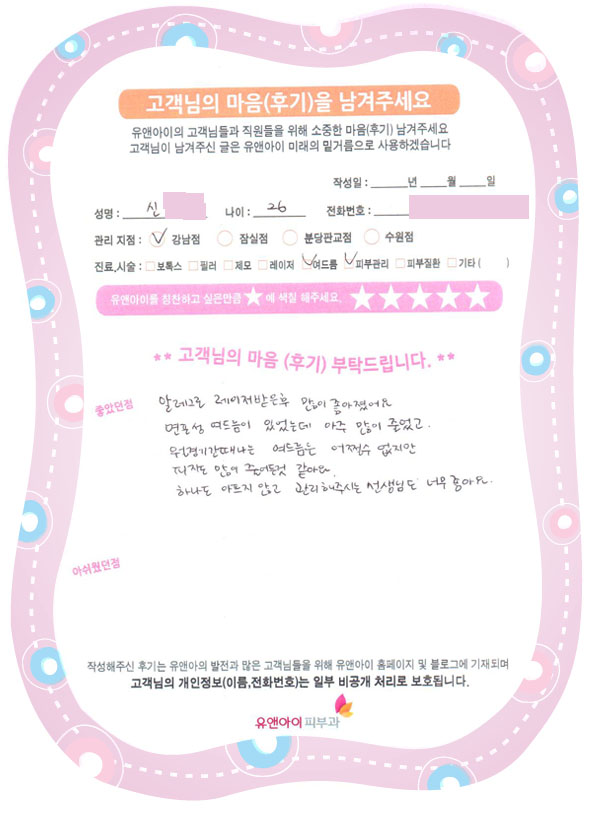 고객님의 마음(후기)을 남겨주세요
유앤아이의 고객님들과 직원들을 위해 소중한 마음(후기) 남겨주세요
고객님이 남겨주신 글은 유앤아이 미래의 밑거름으로 사용하겠습니다
작성일 : ______년 ____월 ____일
성명 : 신 나이 : 26 전화번호 :
관리 지점 : 강남점 잠실점 분당판교점 수원점
진료,시술 : 보톡스 필러 제모 레이저 여드름 피부관리 피부질환 기타 ( )
유앤아이를 칭찬하고 싶은만큼 ★ 에 색칠 해주세요. ★★★★★
** 고객님의 마음 (후기) 부탁드립니다. **
좋았던점
알레그로 레이저받은후 많이 좋아졌어요
면포성 여드름이 있었는데 아주 많이 줄었고.
기간때나는 여드름은 어쩔수 없지만
많이 줄어든것 같아요.
하나도 아프지 않고 관리해주시는 선생님도 너무 좋아요.
아쉬웠던점
작성해주신 후기는 유앤아의 발전과 많은 고객님들을 위해 유앤아이 홈페이지 및 블로그에 기재되며
고객님의 개인정보(이름,전화번호)는 일부 비공개 처리로 보호됩니다.
유앤아이피부과